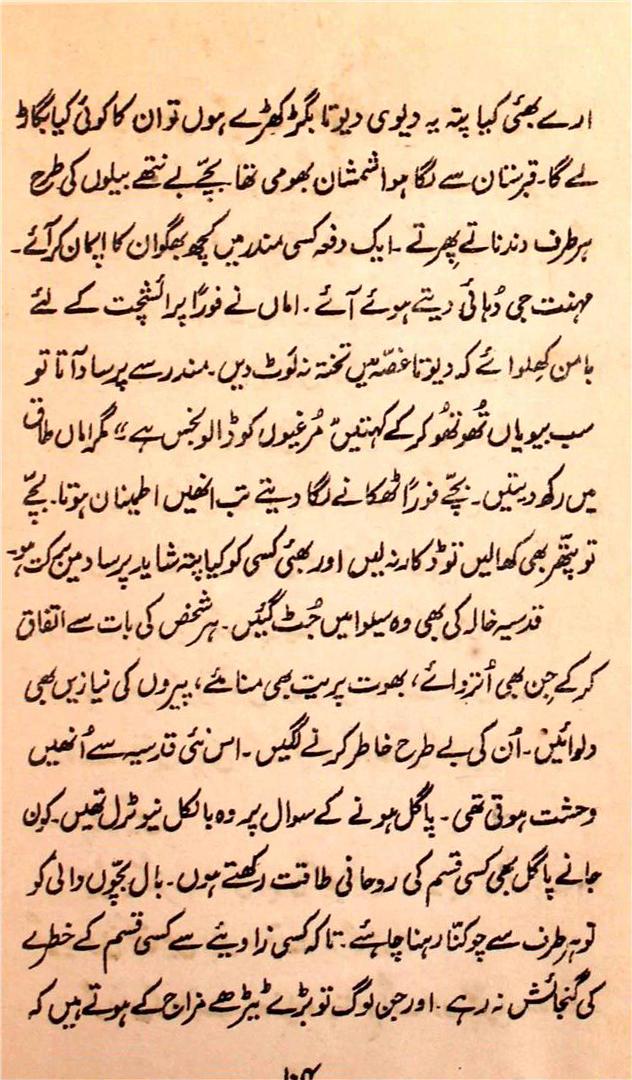 ارے بھئی کیا پتہ یہ دیوی دیوتا بگڑ کھڑے ہوں تو ان کا کوئی کیا بگاڑ
لے گا۔ قبرستان سے لگا ہوا شمشان بھومی تھا بچّے بے نتھے بیلوں کی طرح
ہر طرف دندناتے پھرتے ۔ ایک دفعہ کسی مندر میں کچھ بھگوان کا اپمان کر آئے۔
مہنت جی دُہائی دیتے ہوئے آئے ۔ اماں نے فوراً پرائشچت کے لئے
بامن کھلوائے کہ دیوتا غصّہ میں تختہ نہ لوٹ دیں۔ مندر سے پرساد آتا تو
سب بیویاں تُھو تُھو کر کے کہتیں "مُرغیوں کو ڈالو نجس ہے" مگر اماں طاق
میں رکھ دیتیں۔ بچّے فوراً ٹھکانے لگا دیتے تب انھیں اطینان ہوتا۔ بچّے
تو پتّھر بھی کھالیں تو ڈکار نہ لیں اور بھئی کسی کو کیا پتہ شاید پرساد میں برکت ہو۔
قدسیہ خالہ کی بھی وہ سیوا میں جُٹ گئیں۔ ہر شخص کی بات سے اتفاق
کر کے جِن بھی اُتروائے، بھوت پریت بھی منائے، پیروں کی نیازیں بھی
دلوائیں۔ اُن کی بے طرح خاطر کرنے لگیں ۔ اس نئی قدسیہ سے اُنھیں
وحشت ہوتی تھی ۔ پاگل ہونے کے سوال پر وہ بالکل نیوٹرل تھیں۔ کون
جانے پاگل بھی کسی قسم کی روحانی طاقت رکھتے ہوں۔ بال بچّوں والی کو
تو ہر طرف سے چوکنّا رہنا چاہئے ۔ تاکہ کسی زاویئے سے کسی قسم کے خطرے
کی گنجائش نہ رہے ۔ اور جن لوگ تو بڑے ٹیڑھے مزاج کے ہوتے ہیں کہ